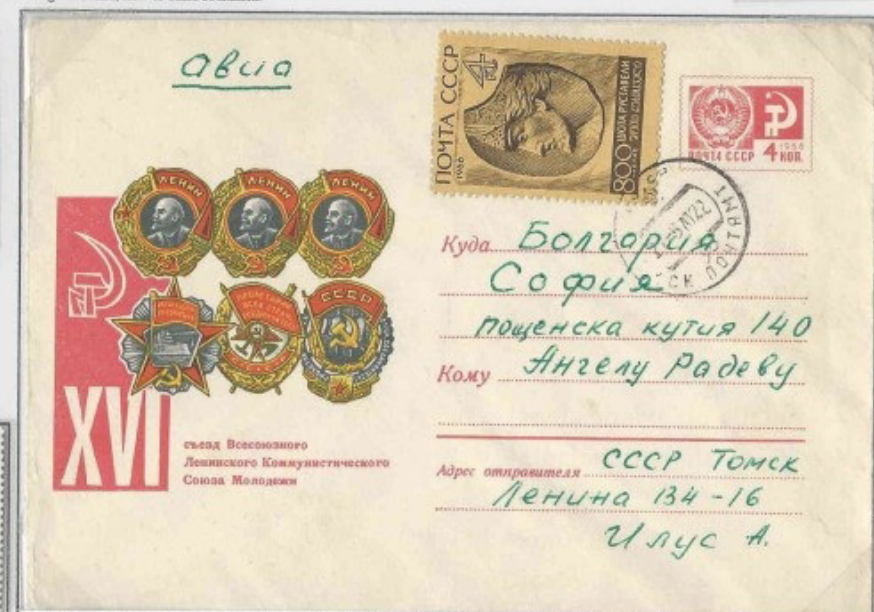 авиа
ПОЧТА СССР
1966
4К
800 ШОТА РУСТАВЕЛИ
ПОЧТА СССР 4 КОП.
1966
ЛЕНИН
ЛЕНИН
ЛЕНИН
СССР
XVI
съезд Всесоюзного
Ленинского Коммунистического
Союза Молодежи
Куда Болгария
София
пощенска кутия 140
Кому Ангелу Радеву
Адрес отправителя СССР Томск
Ленина 134-16
Илус А.